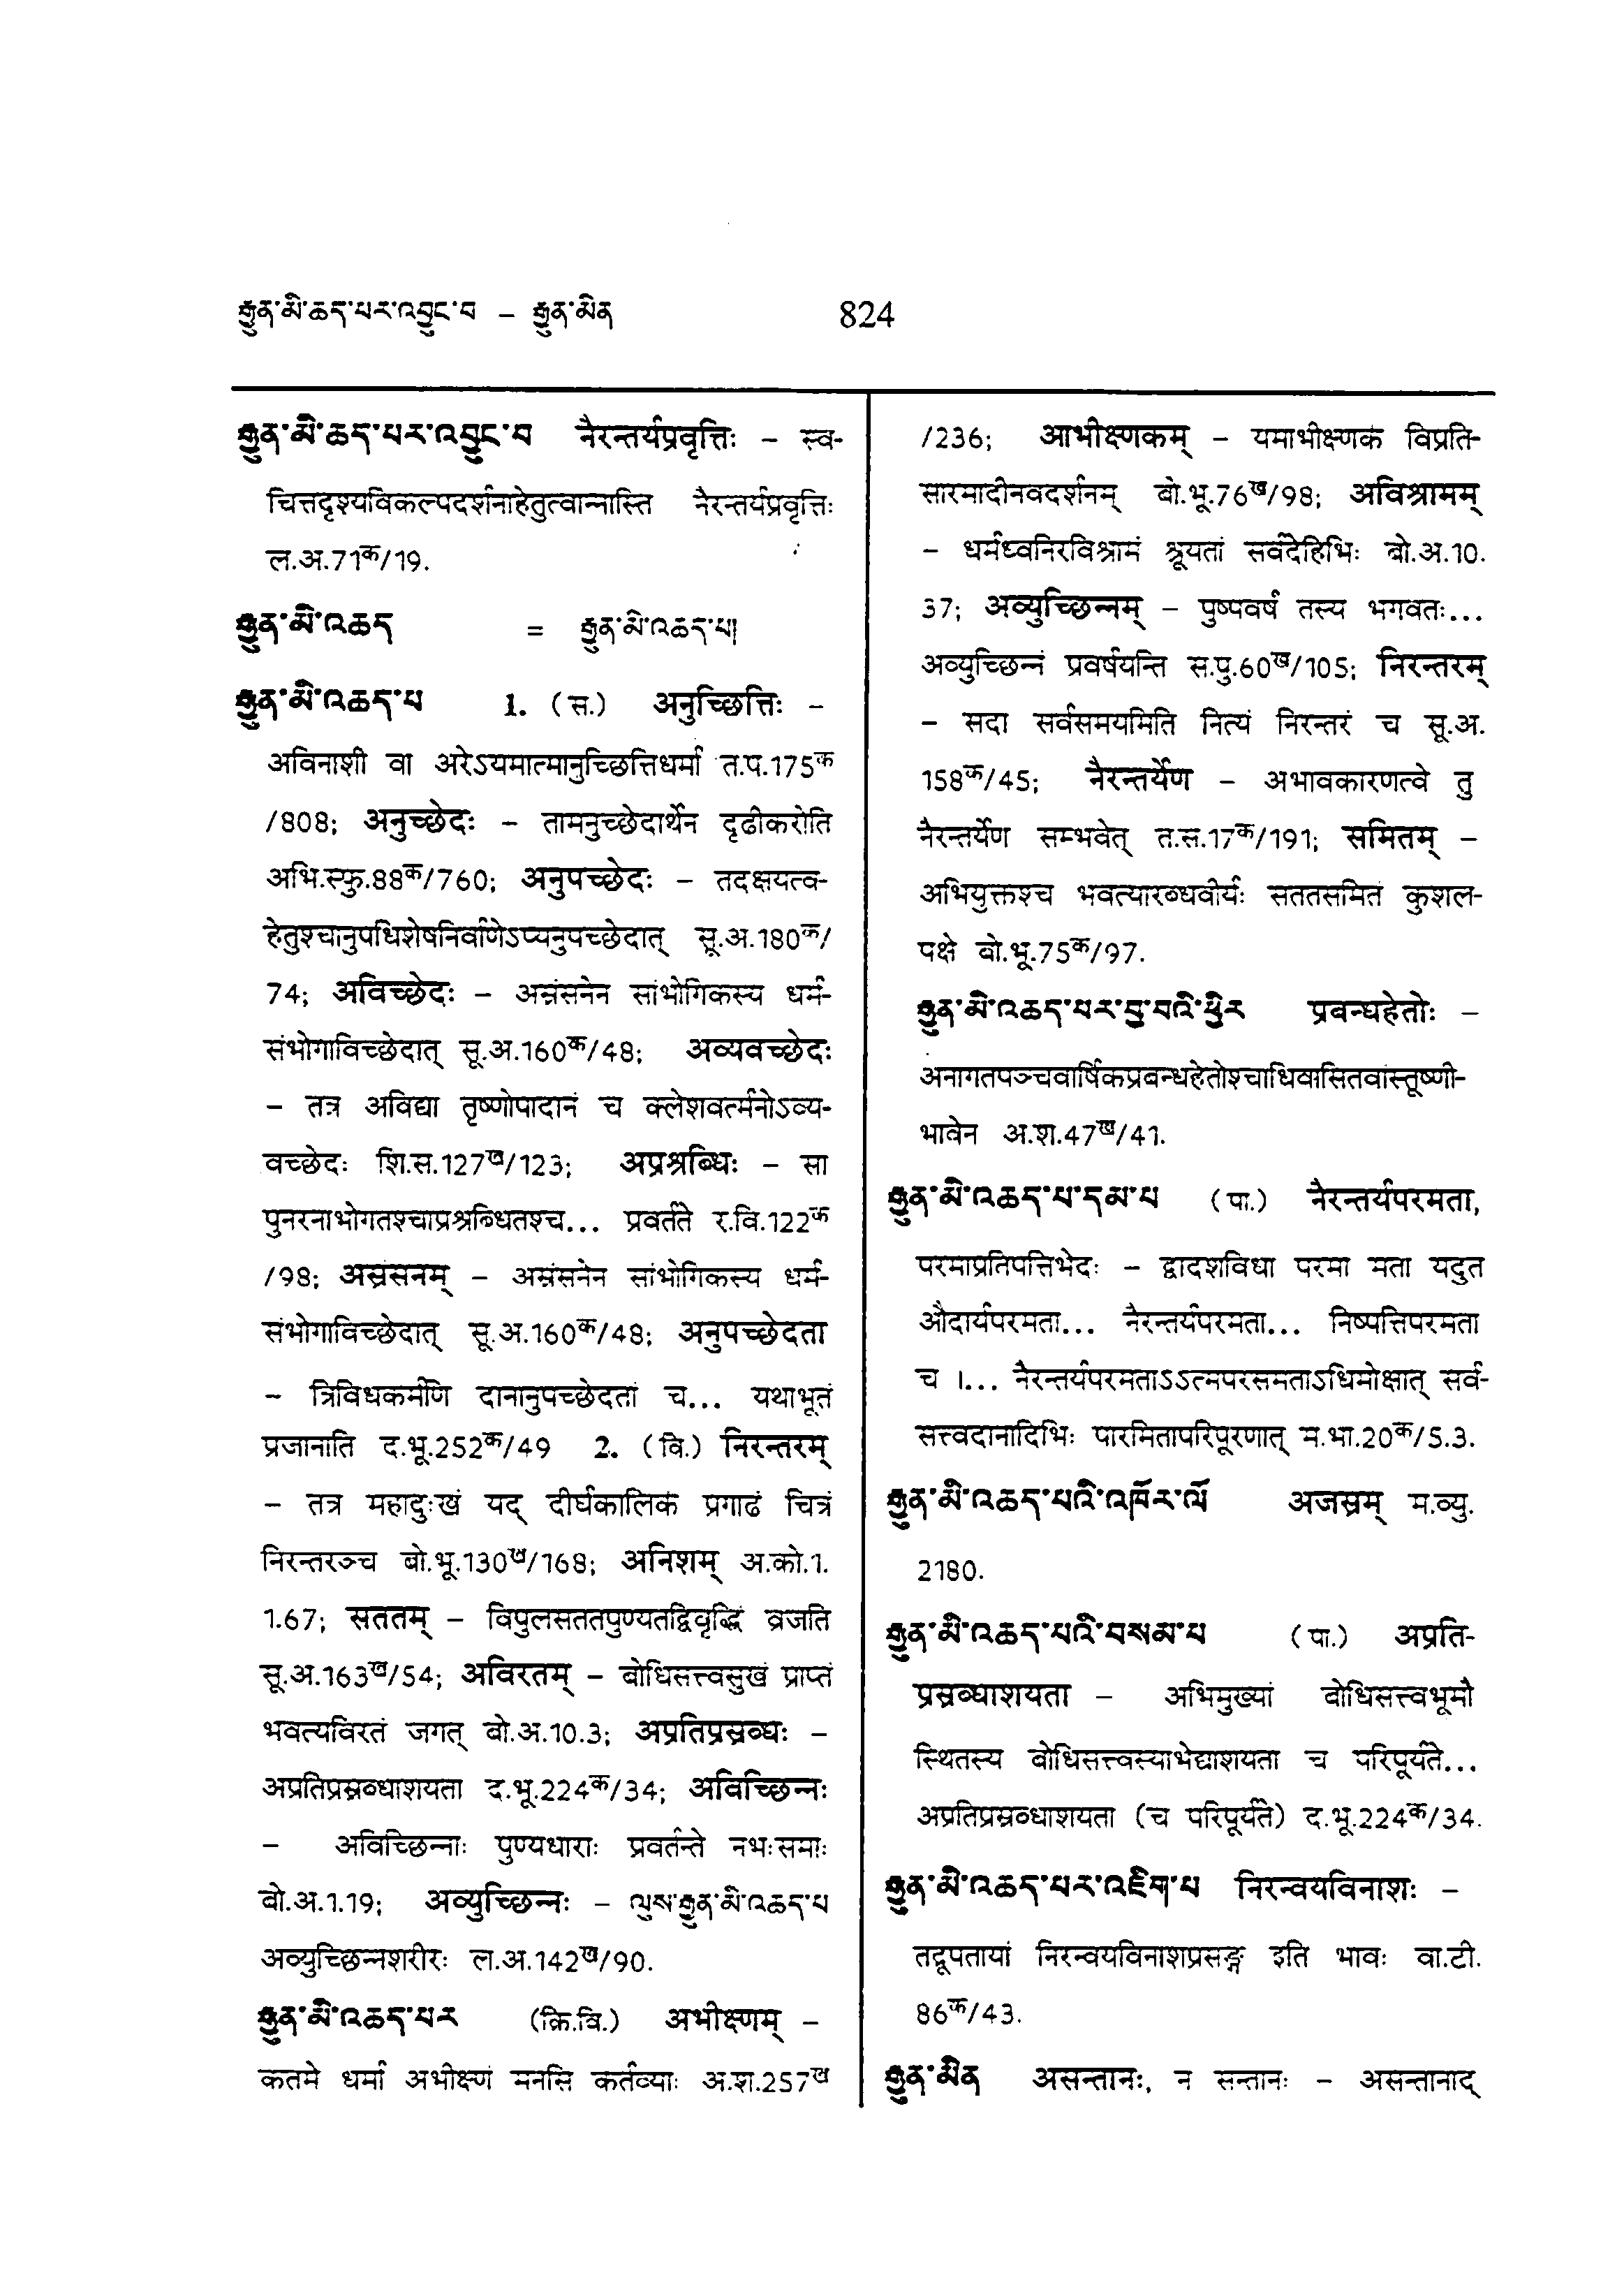 རྒྱུན་མི་ཆད་པར་འབྱུང་བ – རྒྱུན་མིན 824
རྒྱུན་མི་ཆད་པར་འབྱུང་བ नैरन्तर्यप्रवृत्तिः – स्व-
चित्तदृश्यविकल्पदर्शनाहेतुत्वान्नास्ति नैरन्तर्यप्रवृत्तिः
ल.अ.71क/19.
རྒྱུན་མི་འཆད = རྒྱུན་མི་འཆད་པ།
རྒྱུན་མི་འཆད་པ 1. (स.) अनुच्छित्तिः –
अविनाशी वा अरेऽयमात्मानुच्छित्तिधर्मा त.प.175क
/808; अनुच्छेदः – तामनुच्छेदार्थेन दृढीकरोति
अभि.स्फु.88क/760; अनुपच्छेदः – तदक्षयत्व-
हेतुश्चानुपधिशेषनिर्वाणेऽप्यनुपच्छेदात् सू.अ.180क/
74; अविच्छेदः – अस्रंसनेन सांभोगिकस्य धर्म-
संभोगाविच्छेदात् सू.अ.160क/48; अव्यवच्छेदः
– तत्र अविद्या तृष्णोपादानं च क्लेशवर्त्मनोऽव्य-
वच्छेदः शि.स.127ख/123; अप्रश्रब्धिः – सा
पुनरनाभोगतश्चाप्रश्रब्धितश्च... प्रवर्तते र.वि.122क
/98; अस्रंसनम् – अस्रंसनेन सांभोगिकस्य धर्म-
संभोगाविच्छेदात् सू.अ.160क/48; अनुपच्छेदता
– त्रिविधकर्मणि दानानुपच्छेदतां च... यथाभूतं
प्रजानाति द.भू.252क/49 2. (वि.) निरन्तरम्
– तत्र महादुःखं यद् दीर्घकालिकं प्रगाढं चित्रं
निरन्तरञ्च बो.भू.130ख/168; अनिशम् अ.को.1.
1.67; सततम् – विपुलसततपुण्यतद्विवृद्धिं व्रजति
सू.अ.163ख/54; अविरतम् – बोधिसत्त्वसुखं प्राप्तं
भवत्यविरतं जगत् बो.अ.10.3; अप्रतिप्रस्रब्धः –
अप्रतिप्रस्रब्धाशयता द.भू.224क/34; अविच्छिन्नः
– अविच्छिन्नाः पुण्यधाराः प्रवर्तन्ते नभःसमाः
बो.अ.1.19; अव्युच्छिन्नः – ལུས་རྒྱུན་མི་འཆད་པ
अव्युच्छिन्नशरीरः ल.अ.142ख/90.
རྒྱུན་མི་འཆད་པར (क्रि.वि.) अभीक्ष्णम् –
कतमे धर्मा अभीक्ष्णं मनसि कर्तव्याः अ.श.257ख
/236; आभीक्ष्णकम् – यमाभीक्ष्णकं विप्रति-
सारमादीनवदर्शनम् बो.भू.76ख/98; अविश्रामम्
– धर्मध्वनिरविश्रामं श्रूयतां सर्वदेहिभिः बो.अ.10.
37; अव्युच्छिन्नम् – पुष्पवर्षं तस्य भगवतः...
अव्युच्छिन्नं प्रवर्षयन्ति स.पु.60ख/105; निरन्तरम्
– सदा सर्वसमयमिति नित्यं निरन्तरं च सू.अ.
158क/45; नैरन्तर्येण – अभावकारणत्वे तु
नैरन्तर्येण सम्भवेत् त.स.17क/191; समितम् –
अभियुक्तश्च भवत्यारब्धवीर्यः सततसमितं कुशल-
पक्षे बो.भू.75क/97.
རྒྱུན་མི་འཆད་པར་བྱ་བའི་ཕྱིར प्रबन्धहेतोः –
अनागतपञ्चवार्षिकप्रबन्धहेतोश्चाधिवासितवांस्तूष्णी-
भावेन अ.श.47ख/41.
རྒྱུན་མི་འཆད་པ་དམ་པ (पा.) नैरन्तर्यपरमता,
परमाप्रतिपत्तिभेदः – द्वादशविधा परमा मता यदुत
औदार्यपरमता... नैरन्तर्यपरमता... निष्पत्तिपरमता
च ।... नैरन्तर्यपरमताऽऽत्मपरसमताऽधिमोक्षात् सर्व-
सत्त्वदानादिभिः पारमितापरिपूरणात् म.भा.20क/5.3.
རྒྱུན་མི་འཆད་པའི་འཁོར་ལོ अजस्रम् म.व्यु.
2180.
རྒྱུན་མི་འཆད་པའི་བསམ་པ (पा.) अप्रति-
प्रस्रब्धाशयता – अभिमुख्यां बोधिसत्त्वभूमौ
स्थितस्य बोधिसत्त्वस्याभेद्याशयता च परिपूर्यते...
अप्रतिप्रस्रब्धाशयता (च परिपूर्यते) द.भू.224क/34.
རྒྱུན་མི་འཆད་པར་འཇིག་པ निरन्वयविनाशः –
तद्रूपतायां निरन्वयविनाशप्रसङ्ग इति भावः वा.टी.
86क/43.
རྒྱུན་མིན असन्तानः, न सन्तानः – असन्तानाद्